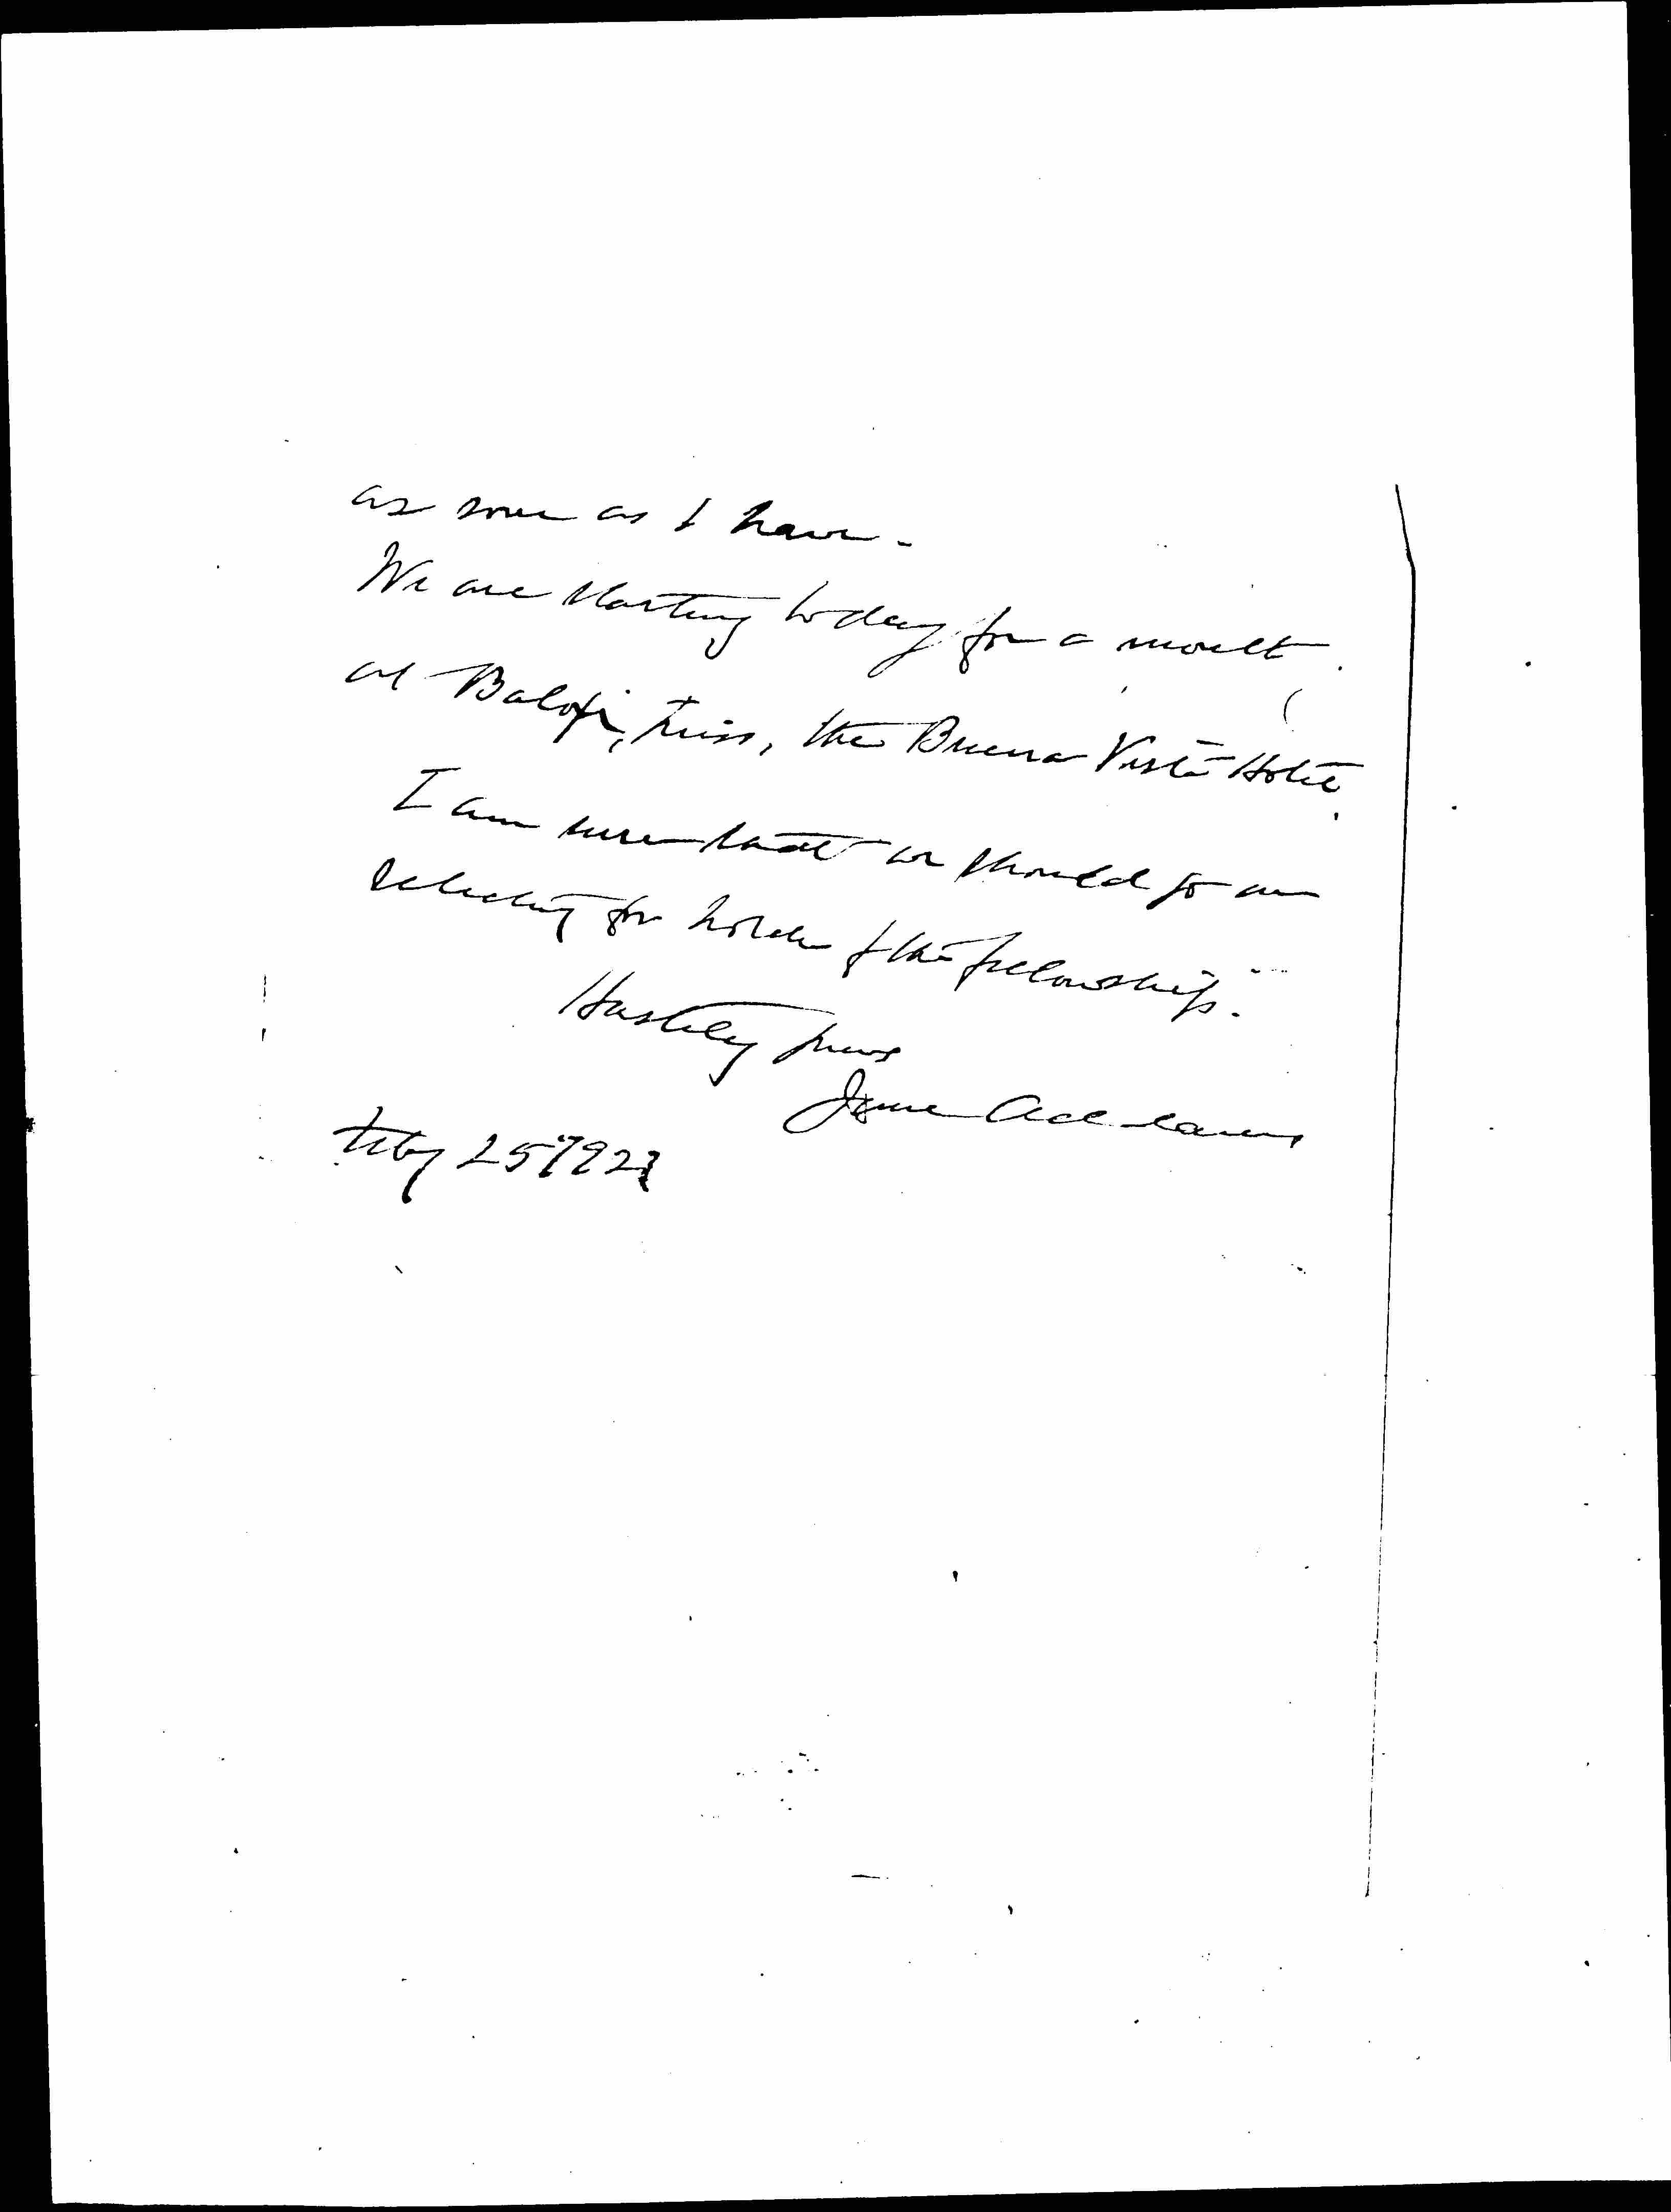 as soon as I have.
We are starting today for a month
at Baloxi, Miss, the Buena Vista Hotel.
I am sure that we should go on
selecting for holder of the fellowship.
Hastily yours
Jane Addams
Feby 25" 1927